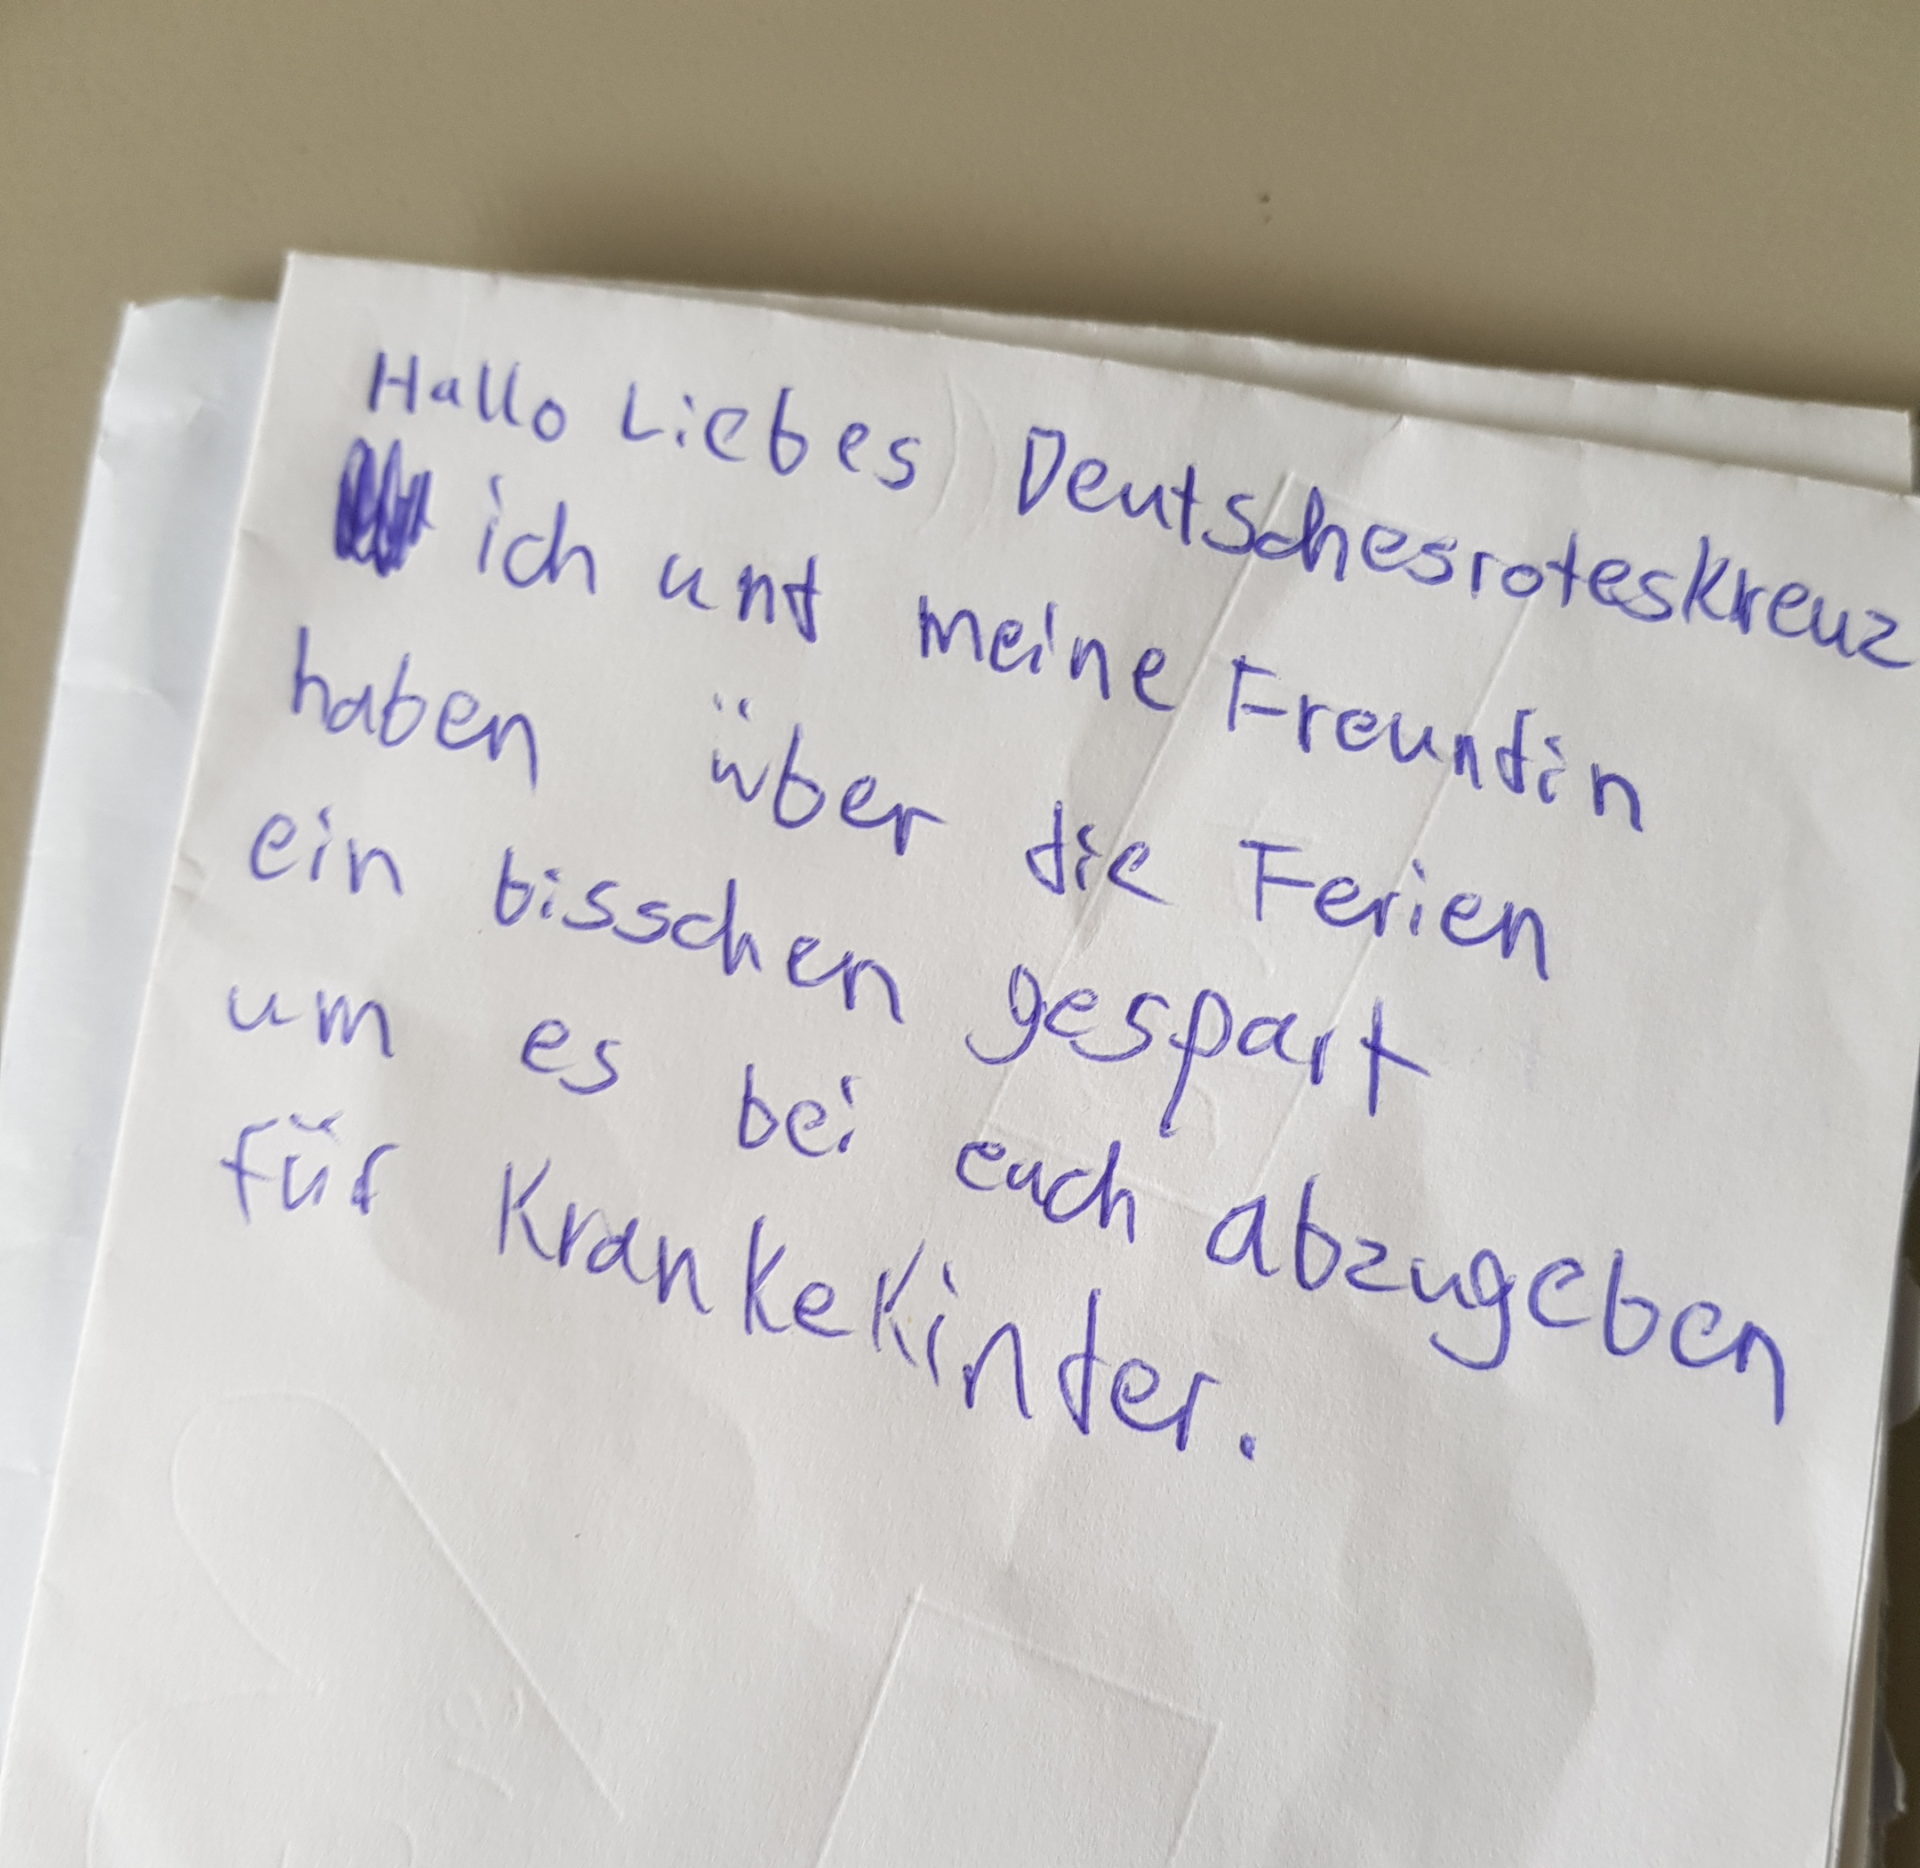 Hallo Liebes Deutschesroteskreuz
ich unt meine Freundin
haben über die Ferien
ein bisschen gespart
um es bei euch abzugeben
für KrankeKinder.